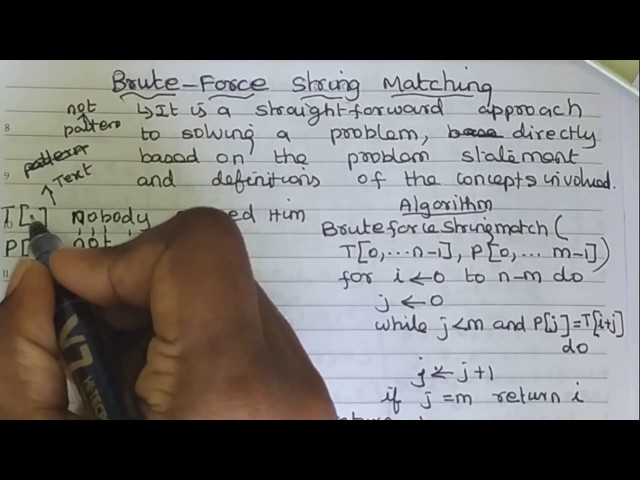 Brute-Force String Matching
not ↳It is a straightforward approach
pattern to solving a problem, directly
pattern based on the problem statement
Text and definitions of the concepts involved.
Algorithm
T[i] Nobody Him
P[ not
Bruteforcestringmatch(
T[0,...n-1], P[0,... m-1])
for i ← 0 to n-m do
j ← 0
while j<m and P[j]=T[i+j]
do
j ← j+1
if j=m return i
V7